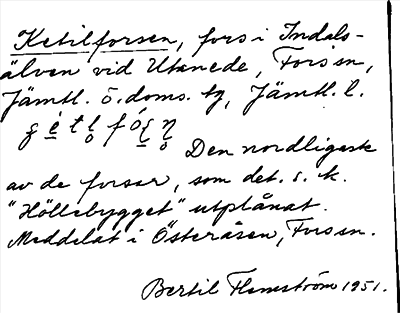 Ketilforsen, fors i Indals-
älven vid Utanede, Fors sn,
Jämtl. ö. doms. tg, Jämtl. l.
Den nordligaste
av de forsar, som det s. k.
"Höllebygget" utplånat.
Meddelat i Österåsen, Fors sn.
Bertil Flemström 1951.